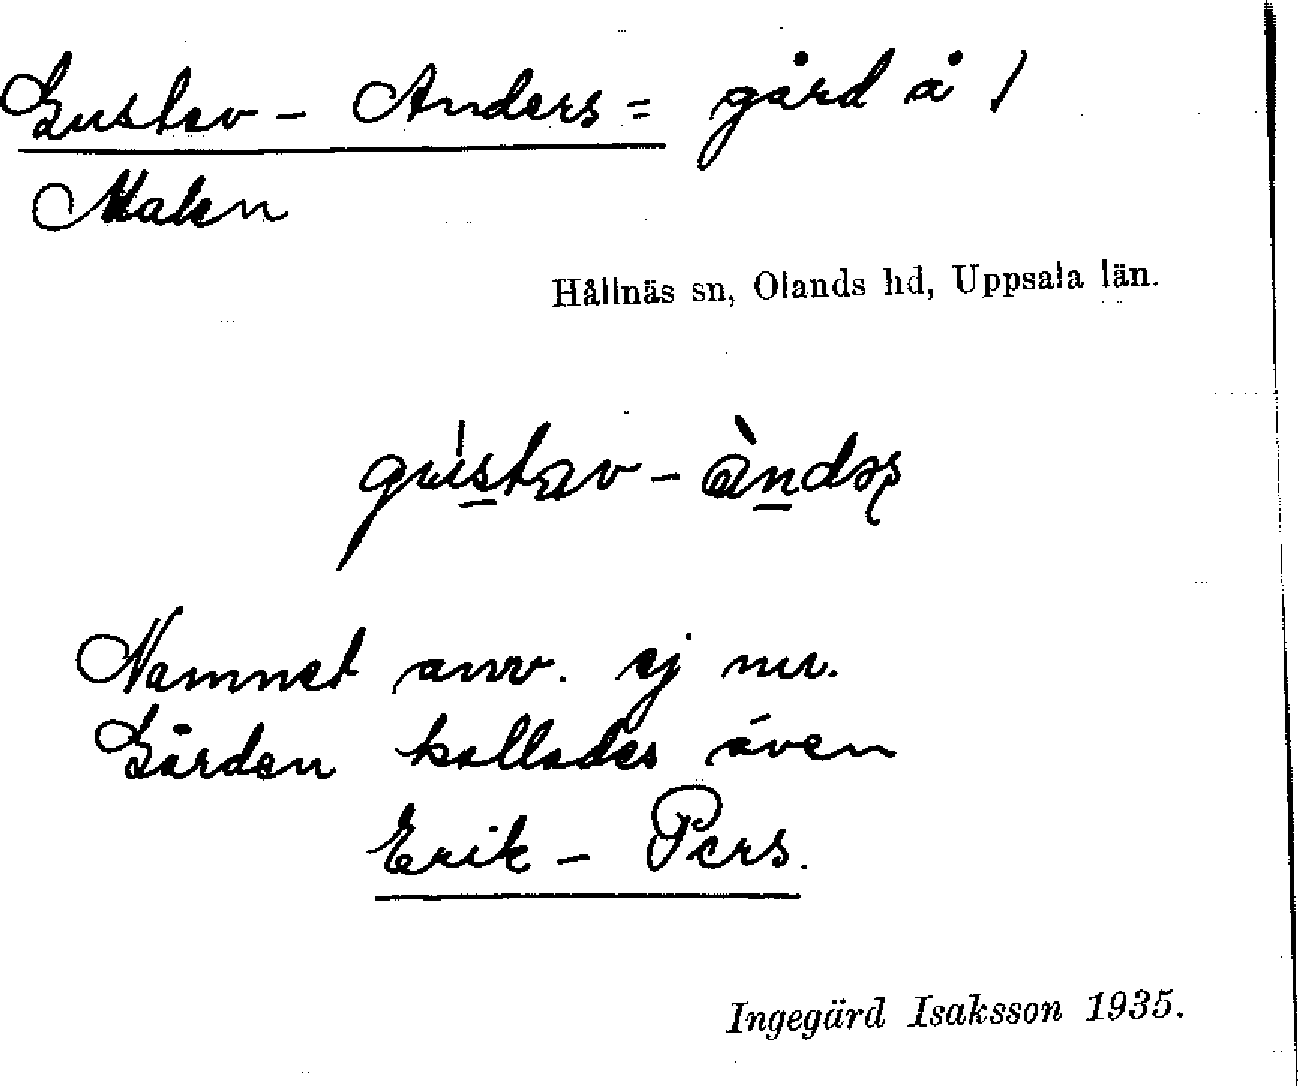 Gustav - Anders = gård å 1
Makn
Hållnäs sn, Olands hd, Uppsala län.
gustav - àndəs
Namnet anv. ej nu.
Gården kallades även
Erik - Pers.
Ingegärd Isaksson 1935.